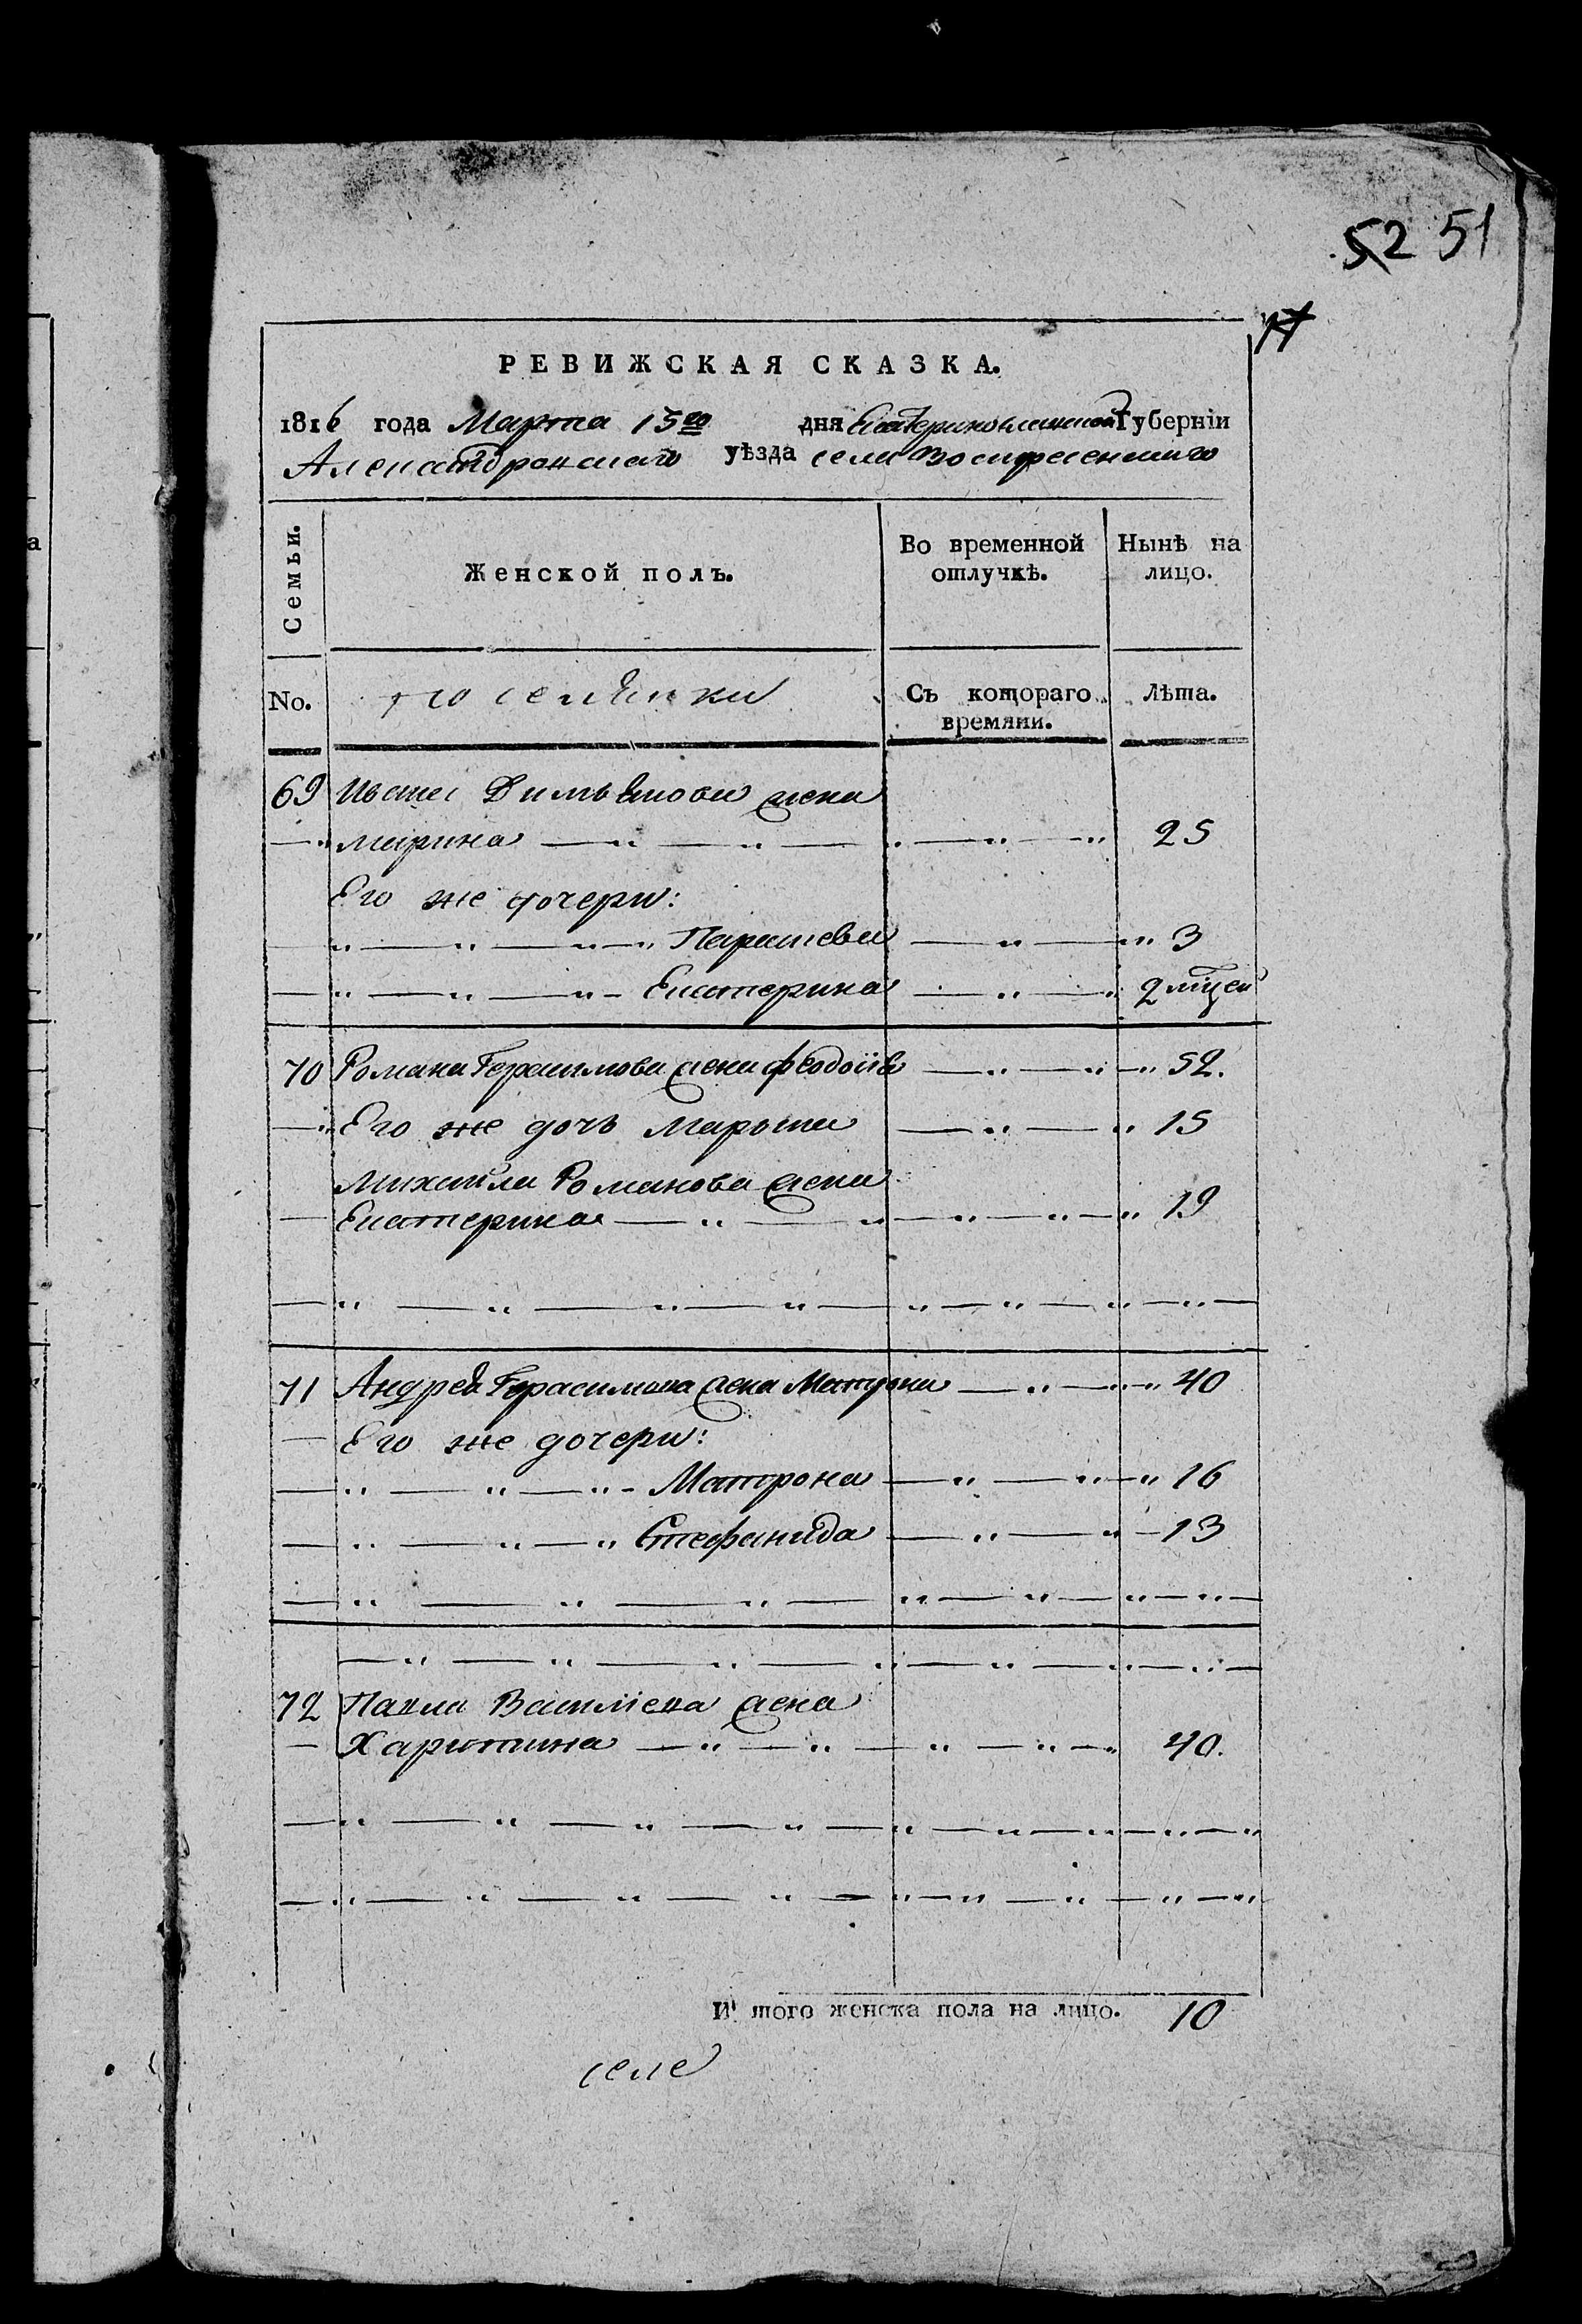 52 51
17
РЕВИЖСКАЯ СКАЗКА.
1816 года Марта 15го дня Екатеринославской Губерніи
Александровскаго уѣзда села Воскресенскаго
Семьи.
Женской полъ.
Во временной отлучкѣ.
Нынѣ на лицо.
No.
поселянки
Съ котораго времяни.
Лѣта.
69 Ивана Димьянова жена
Марина 25
Его же дочери:
Парасковья 3
Екатерина 2 мцей
70 Романа Герасимова жена Феодосія 52.
Его же дочь Марфа 15
Михайла Романова жена
Екатерина 19
71 Андрея Герасимова жена Матрона 40
Его же дочери:
Матрона 16
Стефанида 13
72 Павла Василіева жена
Харитина 40.
И того женска пола на лицо. 10
селе
а